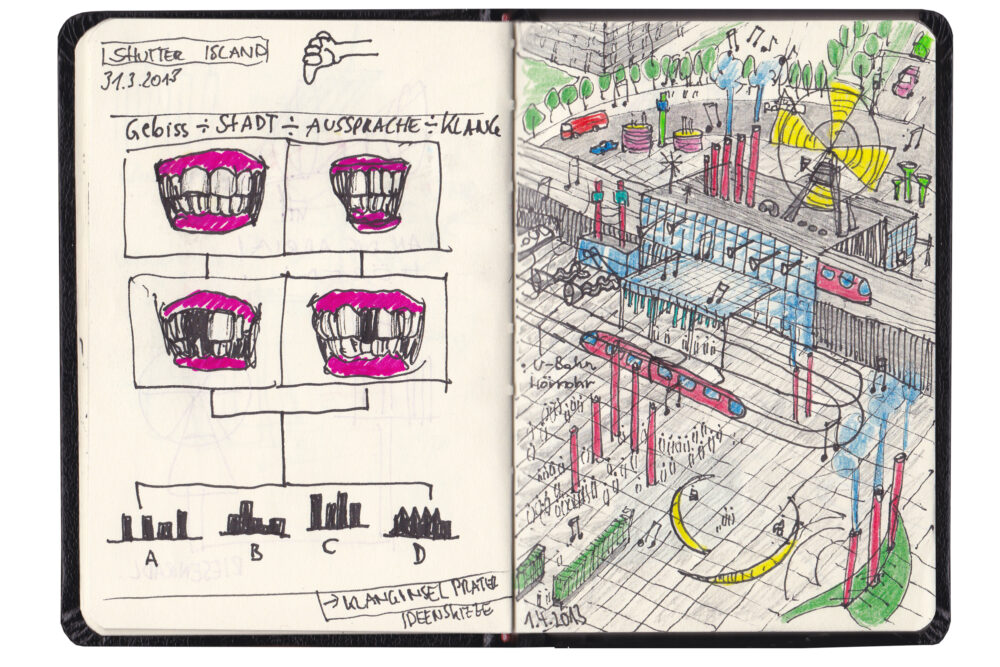 SHUTTER ISLAND
31.3.2013
Gebiss ÷ STADT ÷ AUSSPRACHE ÷ KLANG
A B C D
→ KLANGINSEL PRATER
IDEENSKIZZE
· U-Bahn
Hörrohr
1.4.2013